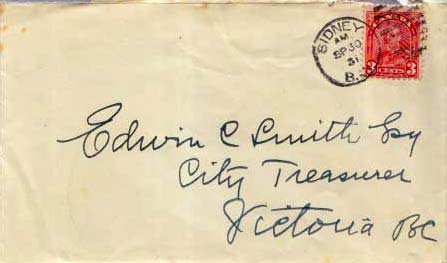 SIDNEY
AM
SP 30
31
B.
CANADA
3 CENTS 3
Edwin C Smith Esq
City Treasurer
Victoria BC